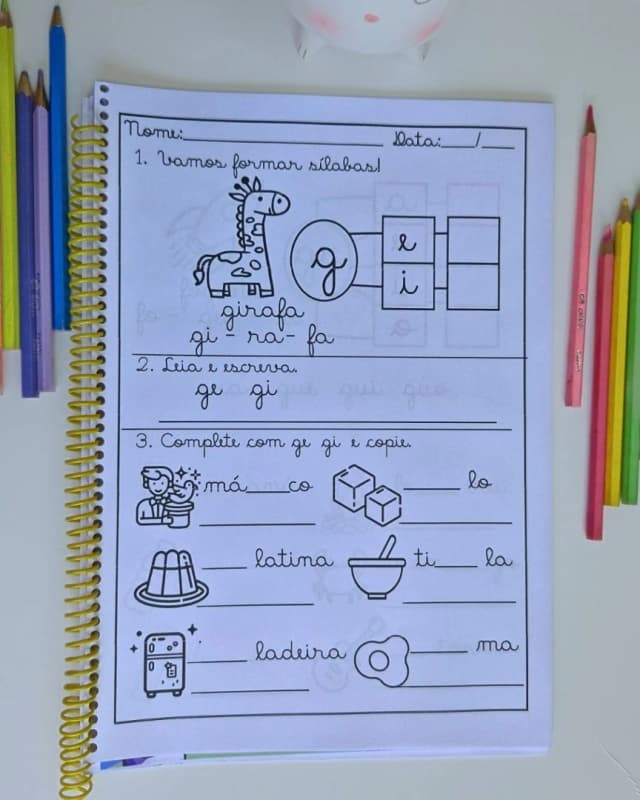 Nome:____________ Data:___/___
1. Vamos formar sílabas!
g e
i
girafa
gi - ra - fa
2. Leia e escreva.
ge gi
3. Complete com ge gi e copie.
má____co ____lo
____latina ti____la
____ladeira ____ma